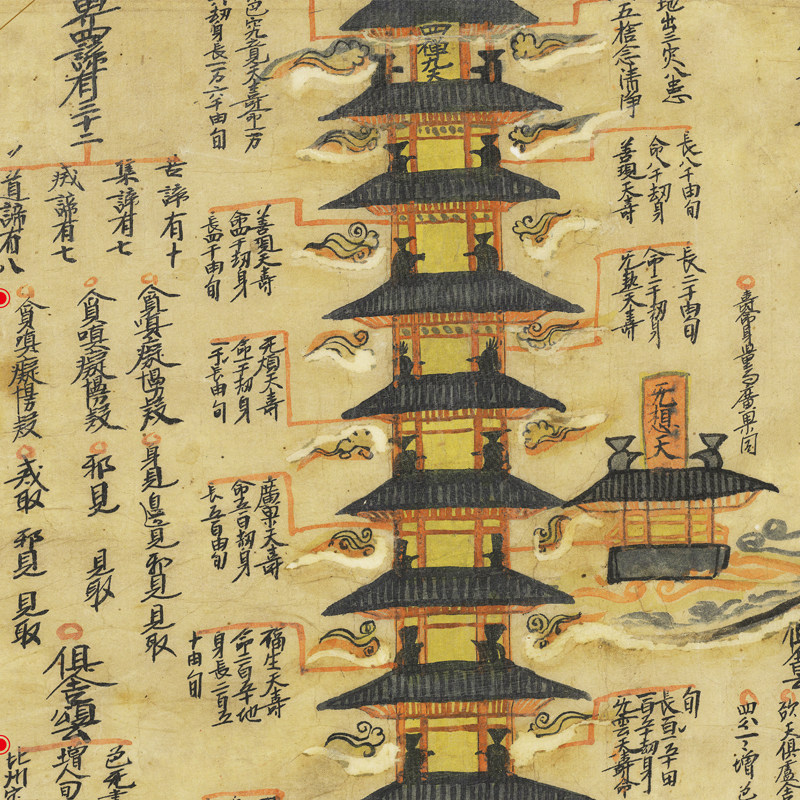 地出三灾八患
五捨念清浄
四禪九天
色究竟天壽命一万
劫身長一万六千由旬
界四諦有三十二
善現天壽
命八千劫身
長八千由旬
苦諦有十
集諦有七
滅諦有七
道諦有八
善現天壽
命四千劫身
長四千由旬
无熱天壽
命二千劫身
長二千由旬
壽命身量与廣果同
无想天
无煩天壽
命一千劫身
一千長由旬
貪嗔癡慢疑
身見邊見邪見見取
貪嗔癡慢疑
邪見 見取
貪嗔癡慢疑
戒取 邪見 見取
廣果天壽
命五百劫身
長五百由旬
福生天壽
身長二百五
十由旬
无雲天壽命
百五十劫身
長百五十由
旬
俱舍頌
增